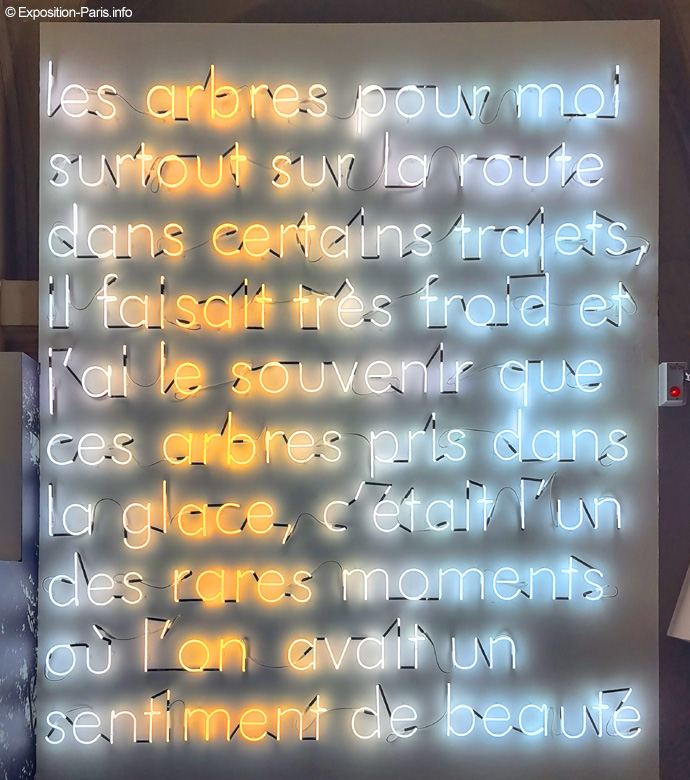 © Exposition-Paris.info
les arbres pour moi
surtout sur la route
dans certains trajets,
il faisait très froid et
j'ai le souvenir que
ces arbres pris dans
la glace, c'était l'un
des rares moments
où l'on avait un
sentiment de beauté